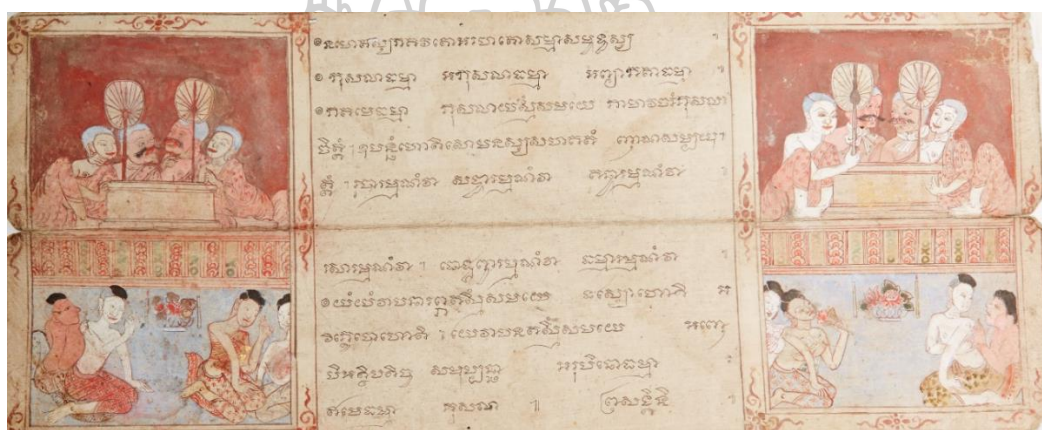 ๏នមោតស្សភគវតោអរហតោសម្មាសម្ពុទ្ធស្ស
๏ កុសលាធម្មា អកុសលាធម្មា អព្យាកតាធម្មា
๏កតមេធម្មា កុសលាយស្មិំសមយេ កាមាវចរំកុសលំ
ចិត្តំ ឧបន្នំហោតិសោមនស្សសហគតំ ញាណសម្បយុ
ត្តំ រូបារម្មណំវា សទ្ទារម្មណំវា គន្ធារម្មណំវា
រសារម្មណំវា ផោដ្ឋព្ពារម្មណំវា ធម្មារម្មណំវា
๏យំយំវាបនារព្ភតស្មិំសមយេ ផស្សោហោតិ អ
វិក្ខេបោហោតិ យេវាបនតស្មិំសមយេ អញ្ញេ
បិអត្ថិបតិច្ច សមុប្បន្នា អរូបិនោធម្មា
ឥមេធម្មា កុសលា ๚ ព្រសង្គិណី